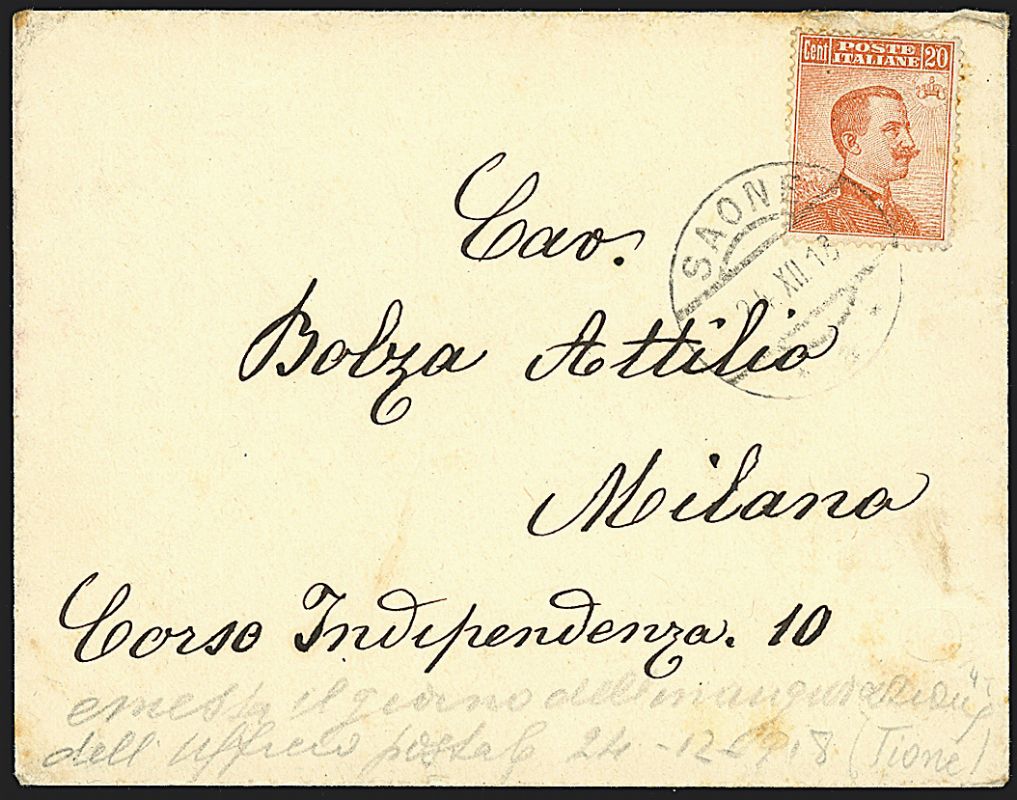 Cent POSTE ITALIANE 20
SAONE
24.XII.18
Cav.
Bolza Attilio
Milano
Corso Indipendenza. 10
emessa il giorno dell'inaugurazione
dell'Ufficio postale 24-12-918 (Tione)